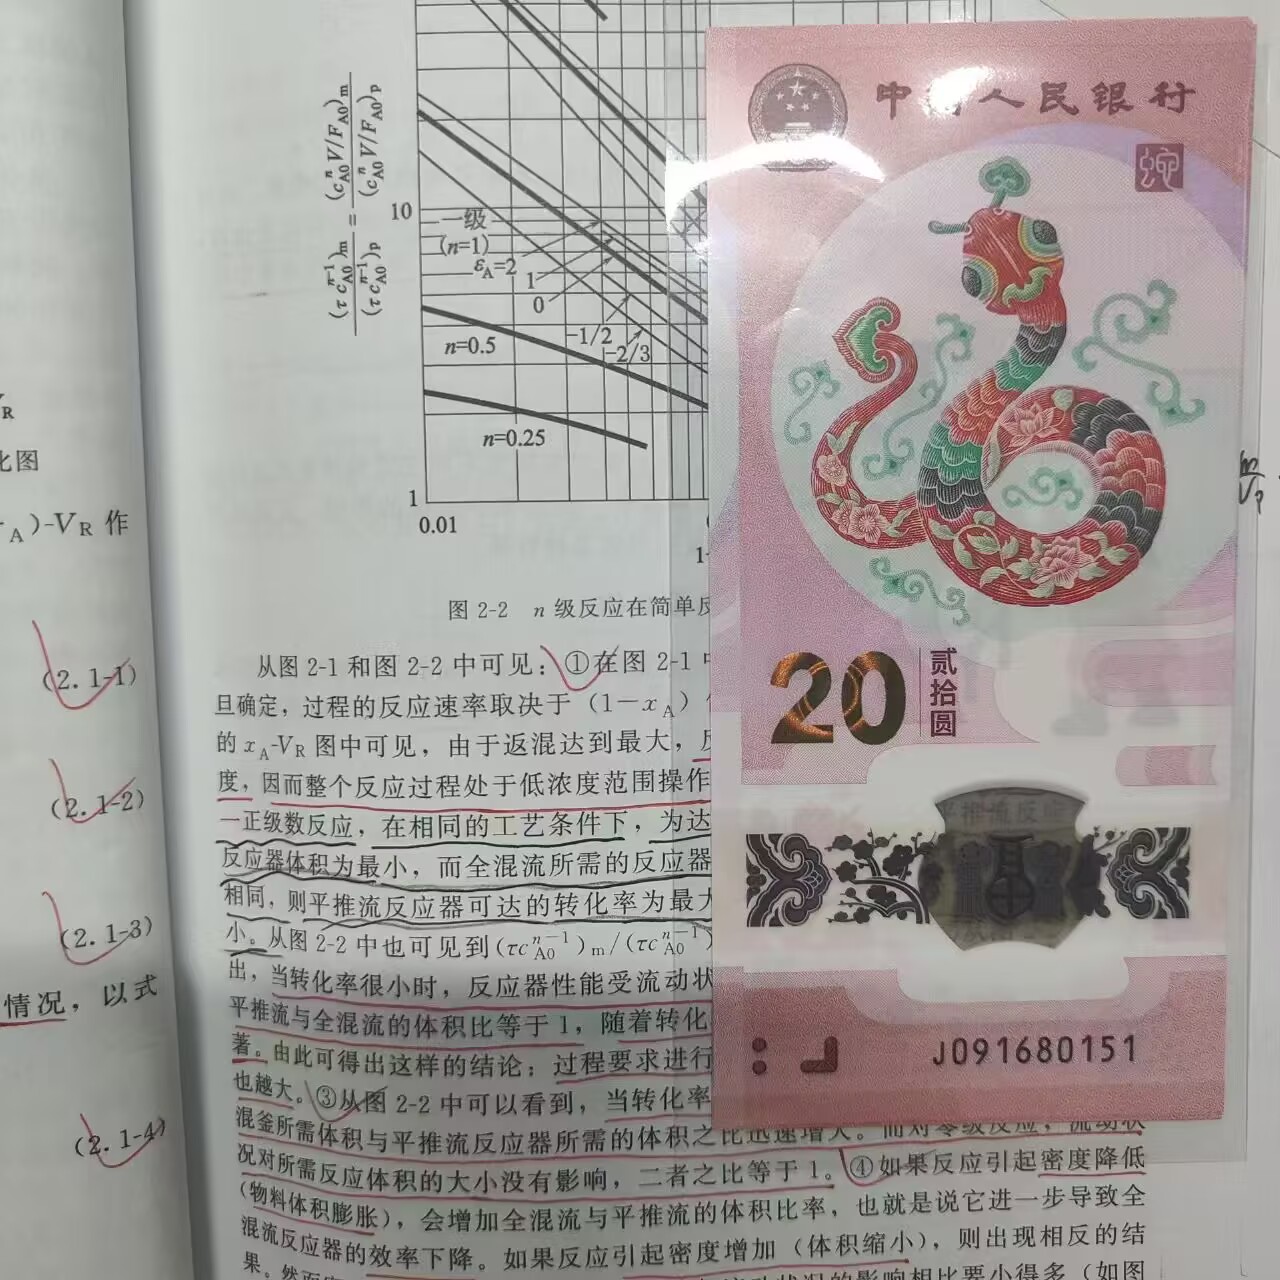 R
化图
A)-VR 作
(2.1-1)
(2.1-2)
(2.1-3)
情况，以式
(2.1-4)
(τc^{n-1}_{A0})_m/(τc^{n-1}_{A0})_p = (c^n_{A0}V/F_{A0})_m/(c^n_{A0}V/F_{A0})_p
10
一级
(n=1)
εA=2
1
0
-1/2
-2/3
n=0.5
n=0.25
1
0.01
图 2-2 n 级反应在简单反
从图 2-1 和图 2-2 中可见：①在图 2-1 中
旦确定，过程的反应速率取决于（1－xA）
的 xA-VR 图中可见，由于返混达到最大，反
度，因而整个反应过程处于低浓度范围操作
一正级数反应，在相同的工艺条件下，为达
反应器体积为最小，而全混流所需的反应器
相同，则平推流反应器可达的转化率为最大
小。从图 2-2 中也可见到(τc^{n-1}_{A0})m/(τc^{n-1}_{A0})
出，当转化率很小时，反应器性能受流动状
平推流与全混流的体积比等于 1，随着转化
著。由此可得出这样的结论：过程要求进行
也越大。③从图 2-2 中可以看到，当转化率
混釜所需体积与平推流反应器所需的体积之比迅速增大。而对零级反应，流动状
况对所需反应体积的大小没有影响，二者之比等于 1。④如果反应引起密度降低
（物料体积膨胀），会增加全混流与平推流的体积比率，也就是说它进一步导致全
混流反应器的效率下降。如果反应引起密度增加（体积缩小），则出现相反的结
果。
中国人民银行
蛇
20
贰拾圆
平推流反应
J091680151